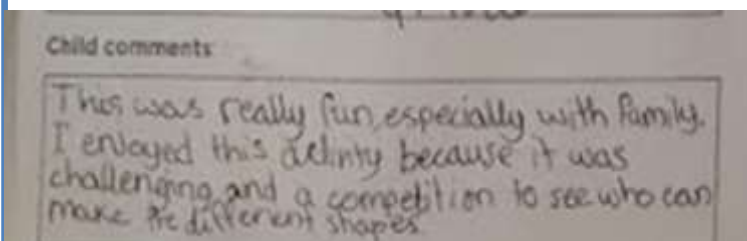 Child comments
This was really fun, especially with family.
I enjoyed this activity because it was
challenging and a competition to see who can
make the different shapes.